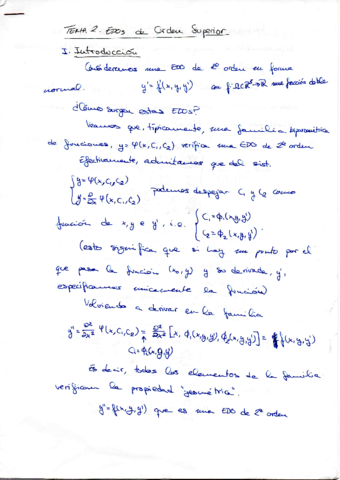 TEMA 2. EDOs de Orden Superior
I. Introducción
Consideremos una EDO de 2º orden en forma
normal. y'' = f(x, y, y') con f: Ω⊂R³→R una función dada
¿Cómo surgen estas EDOs?
Veamos que, típicamente, una familia biparamétrica
de funciones, y = φ(x, C₁, C₂) verifica una EDO de 2º orden
Efectivamente, admitamos que del sist.
{ y = φ(x, C₁, C₂)
y' = ∂/∂x φ(x, C₁, C₂) podemos despejar C₁ y C₂ como
función de x, y e y', i.e. { C₁ = ϕ₁(x, y, y')
C₂ = ϕ₂(x, y, y')
(esto significa que si hay un punto por el
que pasa la función (x₀, y) y su derivada, y',
especificamos unicamente la función)
Volviendo a derivar en la familia
y'' = ∂²/∂x² φ(x, C₁, C₂) = ∂²/∂x² [x, ϕ₁(x, y, y'), ϕ₂(x, y, y')] = f(x, y, y')
C₁ = ϕ₁(x, y, y')
Es decir, todos los elementos de la familia
verifican la propiedad "geométrica".
y'' = f(x, y, y') que es una EDO de 2º orden